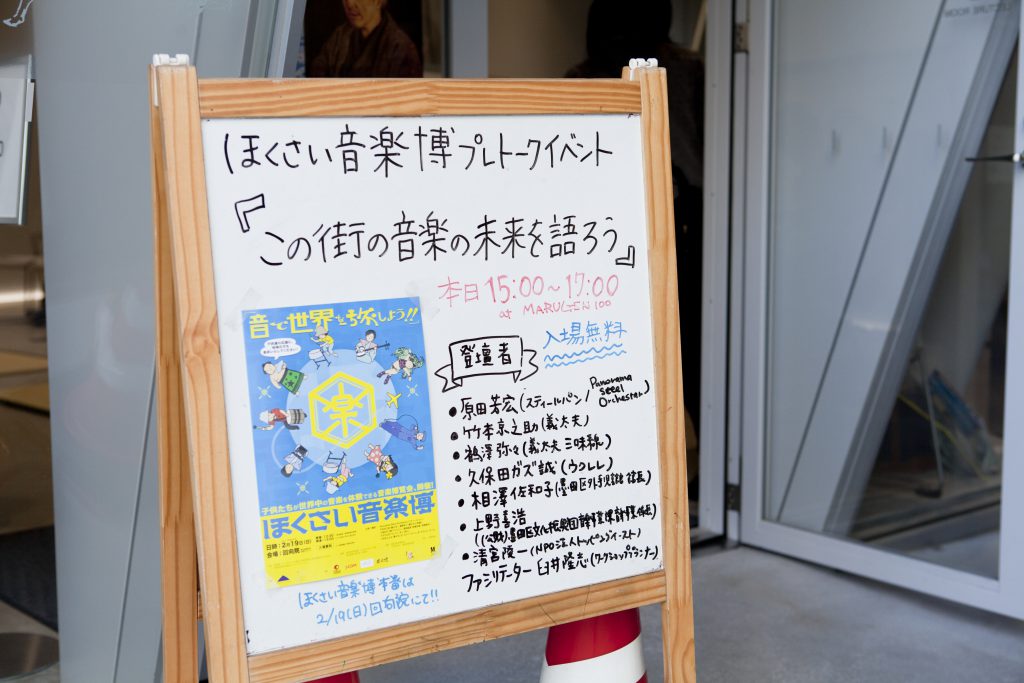 ほくさい音楽博プレトークイベント
『この街の音楽の未来を語ろう』
本日15:00～17:00
at MARUGEN 100
入場無料
登壇者
●原田芳宏(スティールパン/Panorama Steel Orchester)
●竹本京之助(義太夫)
●鶴澤弥々(義太夫 三味線)
●久保田ガズ誠(ウクレレ)
●相澤佐和子
●上野喜浩
●清宮陵一(NPO法人トッピングイースト)
ファシリテーター 臼井隆志(ワークショッププランナー)
音で世界を旅しよう!!
楽
子供たちが世界中の音楽を体験できる音楽博覧会、開催!
ほくさい音楽博
日時:2月19日(日)
会場:回向院
ほくさい音楽博本番は
2/19(日)回向院にて!!
LECTURE ROOM